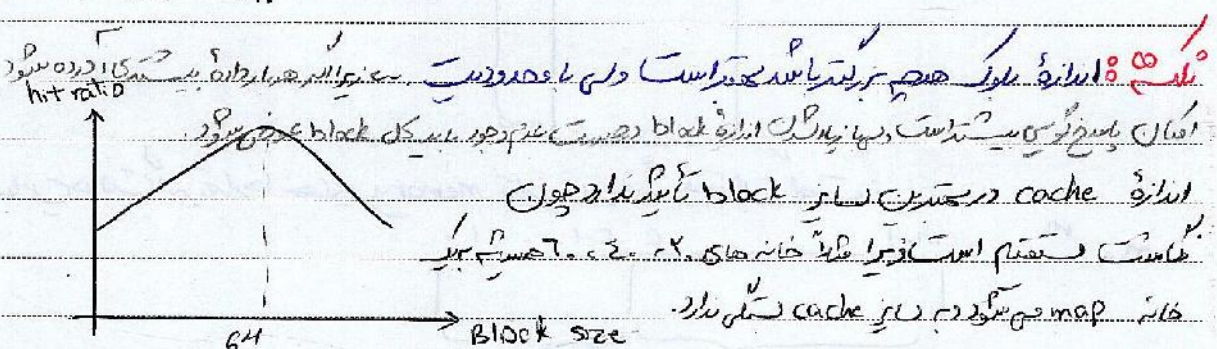 نکته: اندازهٔ بلوک هرچه بزرگتر باشد بهتر است ولی با محدودیت ← زیرا اگر هر بار دادهٔ بیشتری آورده شود
hit ratio
امکان پاسخ‌گویی بیشتر است ولی با زیاد شدن اندازهٔ block در صورت عدم وجود باید کل block عوض شود.
اندازهٔ cache در بهترین سایز block تأثیر ندارد چون
نگاشت مستقیم است زیرا مثلاً خانه های ۲۰۰، ۴۰۰، ۶۰۰ همیشه به یک
خانه map می شود و به سایز cache بستگی ندارد.
64 Block size